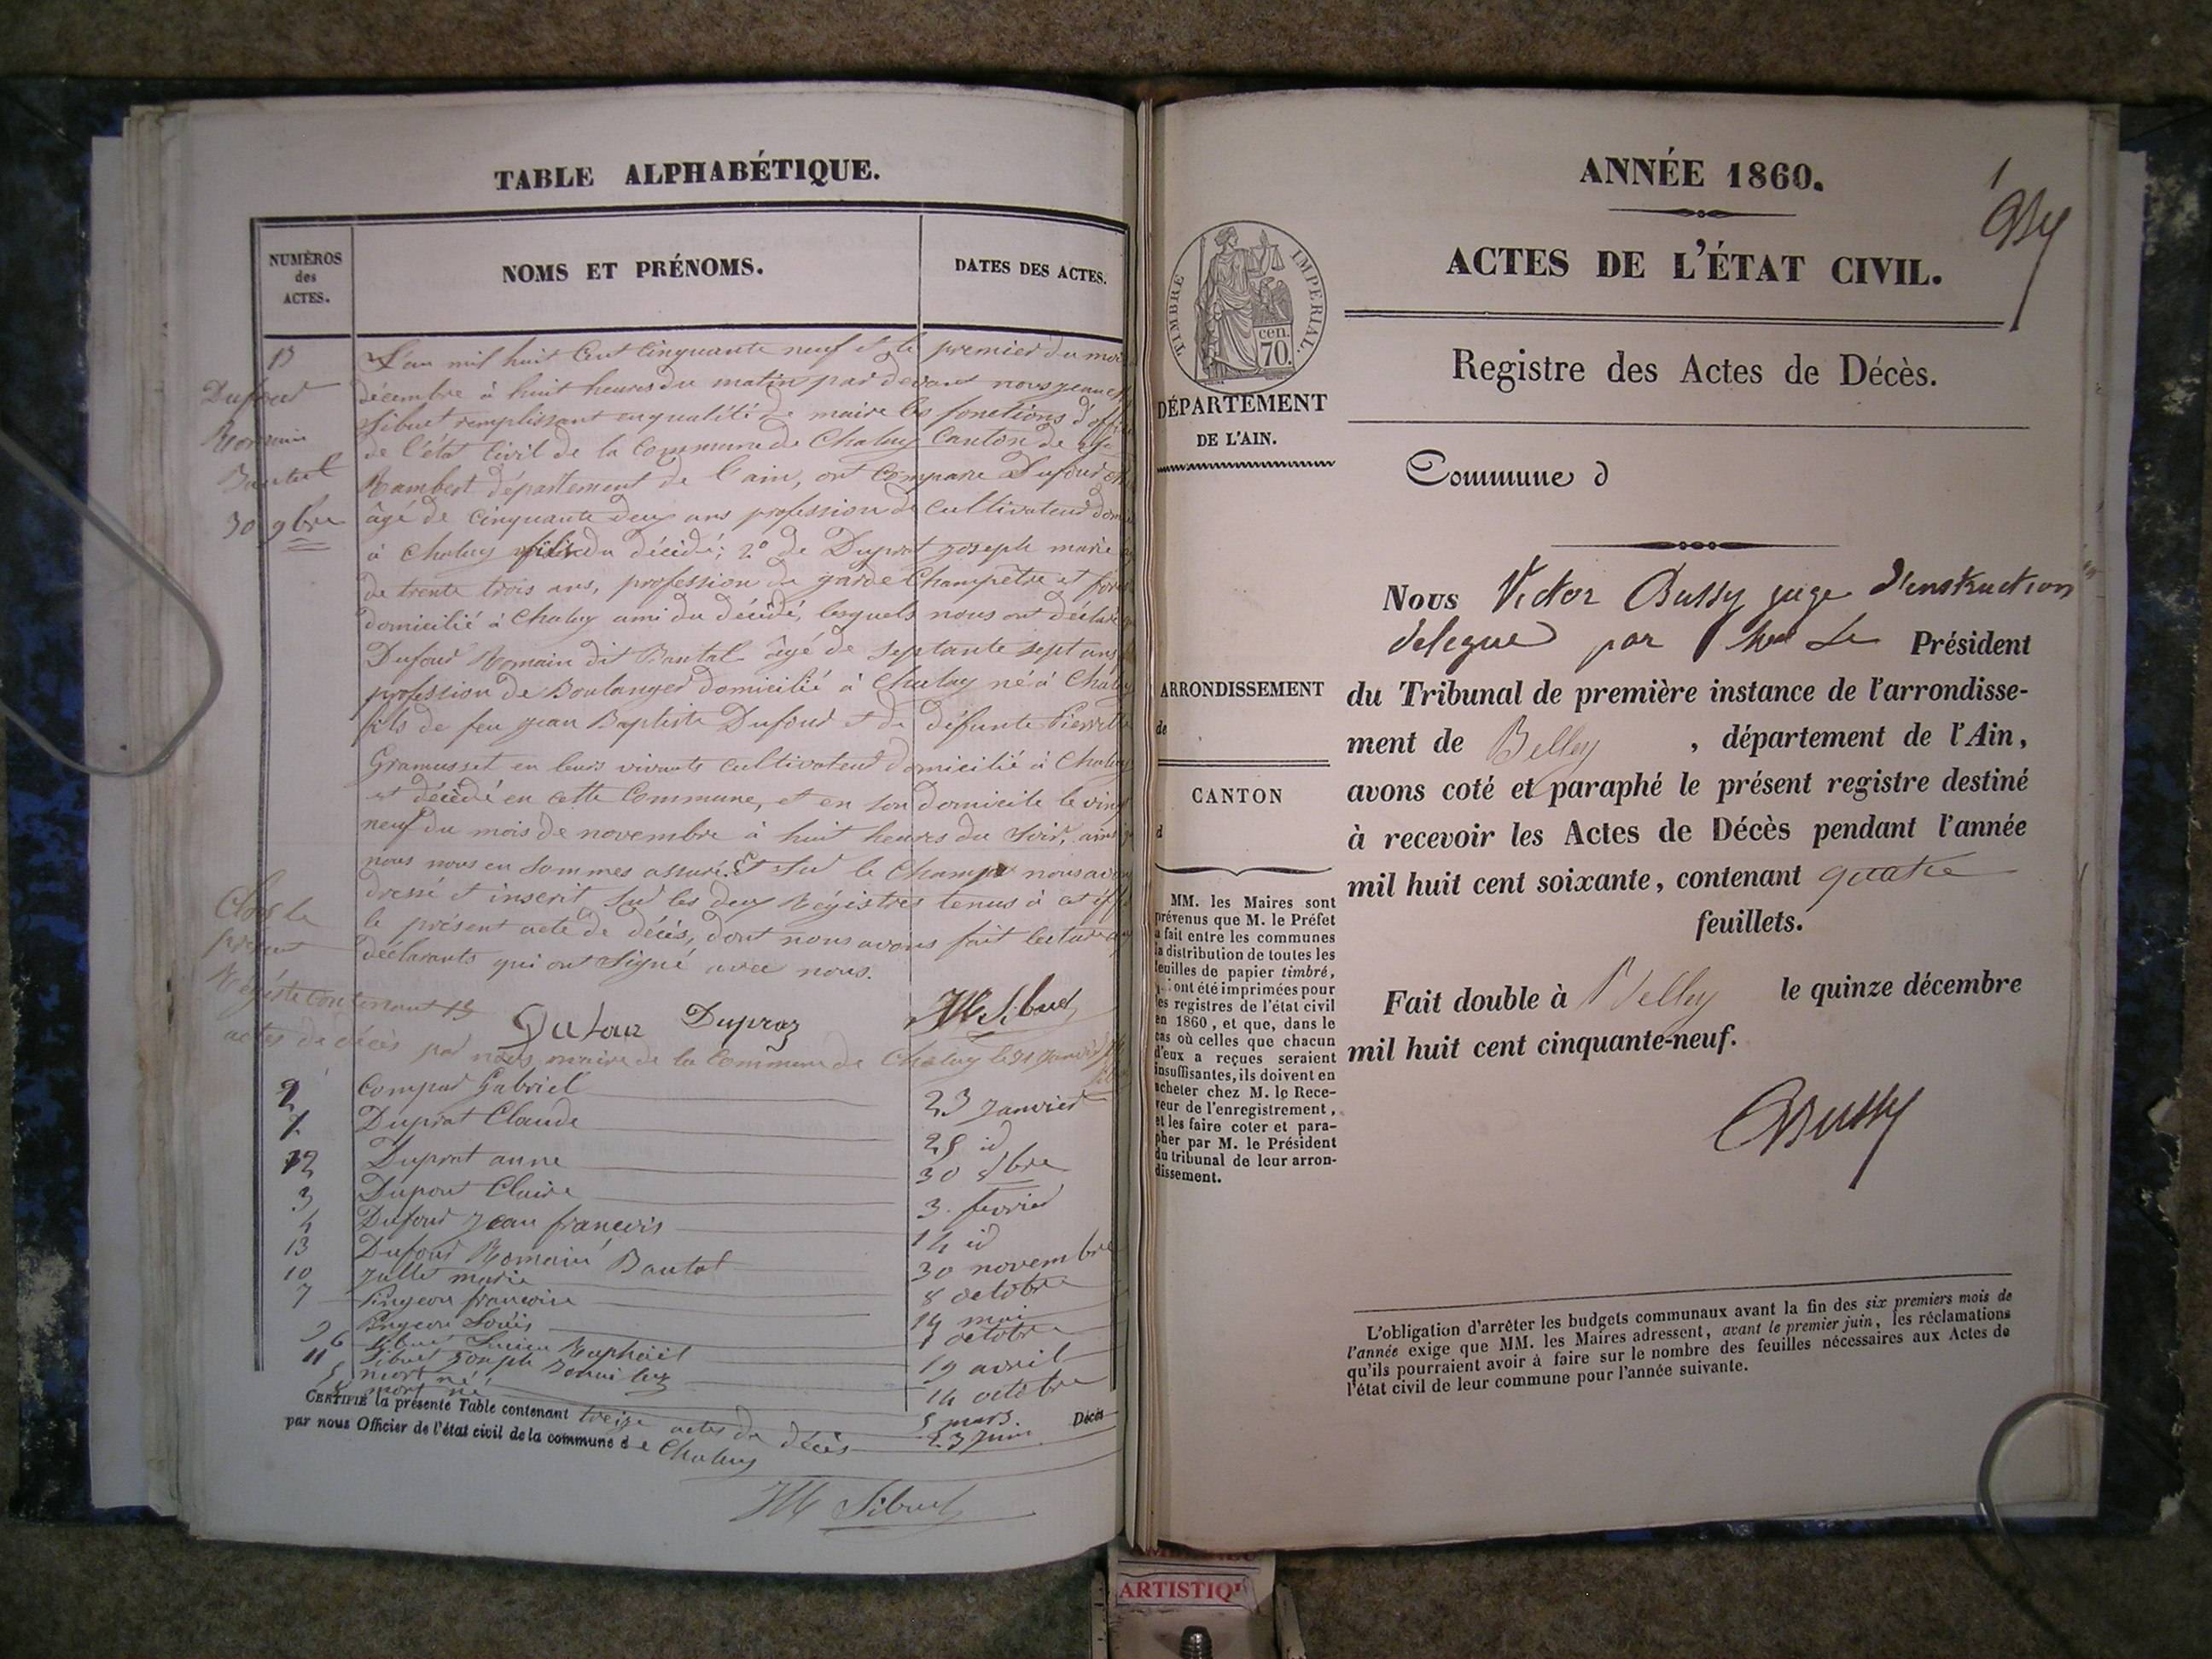 TABLE ALPHABÉTIQUE.
NUMÉROS
des
ACTES.
NOMS ET PRÉNOMS.
DATES DES ACTES.
13
Dufour
Romain
Bautal
30 9bre
L'an mil huit Cent Cinquante neuf et le premier du mois
décembre à huit heures du matin par devant nous
Sibuet remplissant en qualité de maire les fonctions d'
de l'état Civil de la Commune de Chaley Canton de St
Rambert département de l'ain, ont Comparu Dufour
âgé de Cinquante deux ans profession de Cultivateur
à Chaley fils du décédé; 2° de Duprat joseph marie
de trente trois ans, profession de garde Champêtre et
domicilié à Chaley ami du décédé, lesquels nous ont déclaré
Dufour Romain dit Bautal âgé de septante sept ans
profession de Boulanger domicilié à Chaley né à Chaley
fils de feu jean Baptiste Dufour et de défunte Pierrette
Gramusset en leurs vivants Cultivateur domicilié à Chaley
et décédé en cette Commune, et en son domicile le vingt
neuf du mois de novembre à huit heures du soir, ainsi
nous nous en sommes assuré. Et sur le Champ nous avons
dressé et inscrit sur les deux Régistres tenus à cet
le présent acte de décès, dont nous avons fait lecture
déclarants qui ont signé avec nous.
Clos le
présent
Régistre Contenant 13
Dufour Dupraz Sibuet
actes de décès par nous maire de la Commune de Chaley le 31
2 Compar Gabriel 23 janvier
Duprat Claude 25 id
12 Duprat anne 30 8bre
3 Dupont Claire 3 fevrier
4 Dufour jean françois 14 id
13 Dufour Romain Bautal 30 novembre
10 marie 8 octobre
7 Pingeon françoise 14 mai
9 Pingeon Louis 1 octobre
6 Sibuet Lucien Raphaël 19 avril
11 Sibuet joseph 14 octobre
5 mort né 5 mars.
8 mort né 23 juin
CERTIFIÉ la présente Table contenant treize actes de décès Décès
par nous Officier de l'état civil de la commune de Chaley
Sibuet
ANNÉE 1860.
1
ACTES DE L'ÉTAT CIVIL.
TIMBRE IMPÉRIAL.
cen.
70.
Registre des Actes de Décès.
DÉPARTEMENT
DE L'AIN.
Commune d
Nous Victor Bussy juge d'instruction
delegué par Mr Le Président
ARRONDISSEMENT
de
du Tribunal de première instance de l'arrondisse-
ment de Belley , département de l'Ain,
CANTON
d
avons coté et paraphé le présent registre destiné
à recevoir les Actes de Décès pendant l'année
mil huit cent soixante, contenant quatre
feuillets.
MM. les Maires sont
prévenus que M. le Préfet
a fait entre les communes
la distribution de toutes les
feuilles de papier timbré,
ont été imprimées pour
les registres de l'état civil
en 1860, et que, dans le
cas où celles que chacun
d'eux a reçues seraient
insuffisantes, ils doivent en
acheter chez M. le Rece-
veur de l'enregistrement,
et les faire coter et para-
pher par M. le Président
du tribunal de leur arron-
dissement.
Fait double à Belley le quinze décembre
mil huit cent cinquante-neuf.
Bussy
L'obligation d'arrêter les budgets communaux avant la fin des six premiers mois de
l'année exige que MM. les Maires adressent, avant le premier juin, les réclamations
qu'ils pourraient avoir à faire sur le nombre des feuilles nécessaires aux Actes de
l'état civil de leur commune pour l'année suivante.
ARTISTIQ